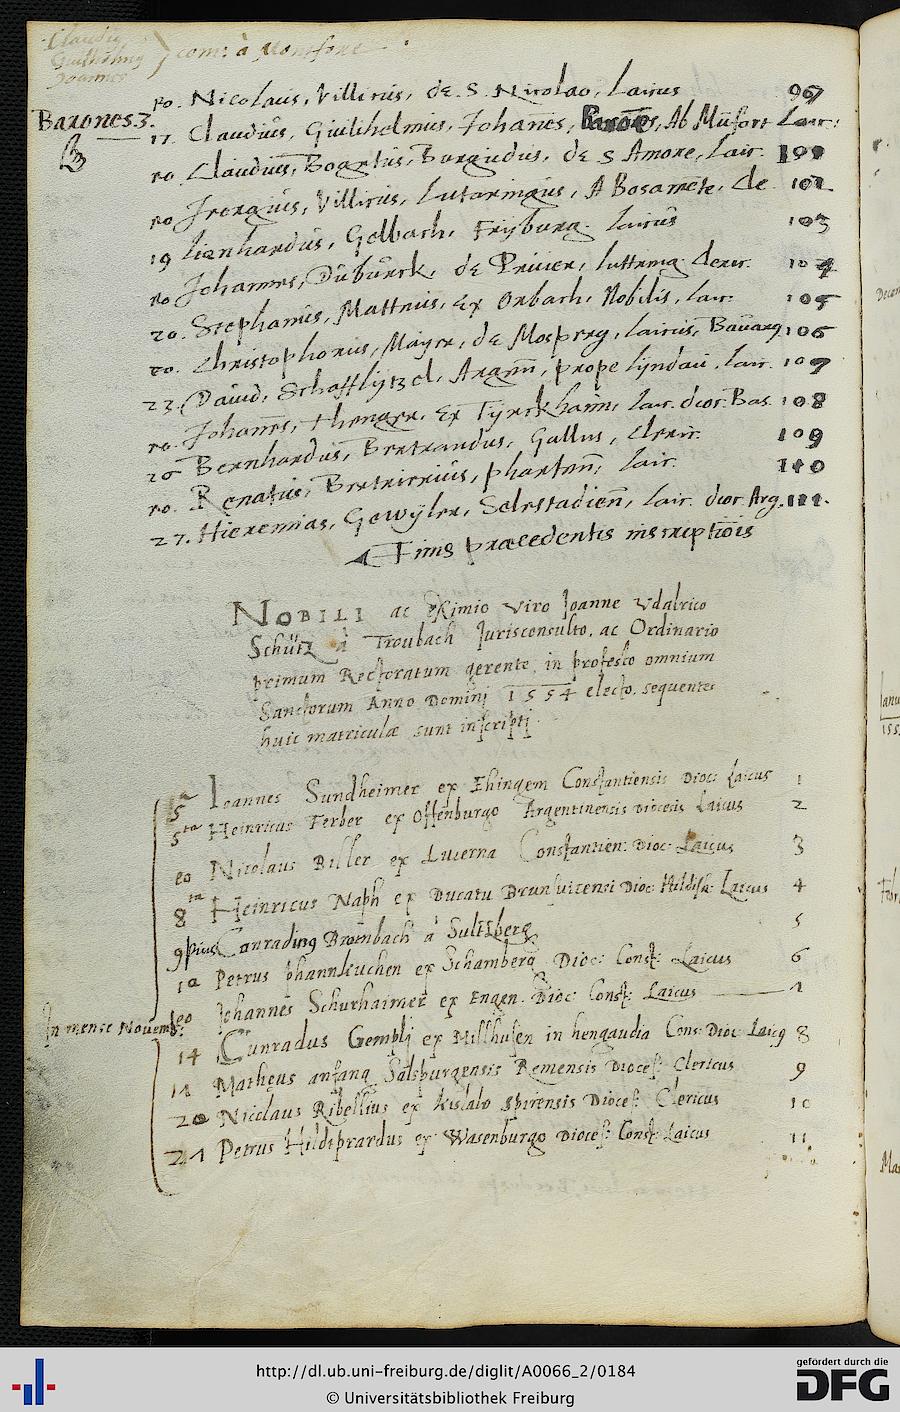 Claudig
Guilhelmg
Joannes
com: à Monfort
Barones 3.
eo. Nicolaus, Villirius, de. S. Nicolao, Laicus 967
17 Claudius, Guilihelmus, Johanes, Barones, Ab Mūfort Laic:
eo. Claudius, Bogrtus, Burgūdus. de S Amore, Laic.
eo Villirius, Lutaringus, A Bosamēte. Cle 102
19 Lienhardus, Gelbach, Fryburg. Laicus 103
eo Johannes, Dübürck, de Priuer, luttring. Cleric. 104
20. Stephanus, Matthus, Ex Orbach, Nobilis, Laic. 105
eo. Christophorus, Mayer, de Mosperg, Laicus, Bauarg 106
23. Dauid, Schafflytzel, Argēn, prope lyndau, Laic. 107
eo. Johannes, Ex Tyrckhaim, Laic. dioc. Bas. 108
26 Bernhardus, Bertrandus, Gallus, Cleric. 109
eo. Renatus, phartēn, Laic. 110
27. Hieremias, Gewyler, Selestadien, Laic. dioc. Arg. 111.
Finis praecedentis inscriptiōis
NOBILI ac eximio viro Joanne Vdalrico
Schütz à Troubach Jurisconsulto, ac Ordinario
primum Rectoratum gerente, in profesto omnium
Sanctorum Anno Domini 1554 electo, sequentes
huic matriculæ sunt inscripti.
5ᵃ Ioannes Sundheimer ex Ehingem Constantiensis Dioc: Laicus 1
5ᵗᵃ Heinricus Ferber ex Offenburgo Argentinensis diocesis Laicus 2
eo Nicolaus Biller ex Lucerna Constantien: Dioc. Laicus 3
8ᵗᵃ Heinricus Naph ex Ducatu Brunsuicensi Dioc Hildess: Laicus 4
9 pius Conrading Brombach à Sultzberg 5
10 Petrus Phannkuchen ex Schamberg Dioc: Const: Laicus 6
eo Johannes Schurhaimer ex Engen. Dioc. Const: Laicus 7
In mense Nouemb:
14 Cunradus Gemplj ex Millhusen in hengaudia Cons: Dioc: Laicg 8
18 Matheus anfang Salsburgensis Remensis Dioces: Clericus 9
20 Nicolaus Ribellius ex kislalo spirensis Dioces: Clericus 10
21 Petrus Hildeprardus ex Wasenburgo Dioces: Const: Laicus 11
http://dl.ub.uni-freiburg.de/diglit/A0066_2/0184
© Universitätsbibliothek Freiburg
gefördert durch die
DFG